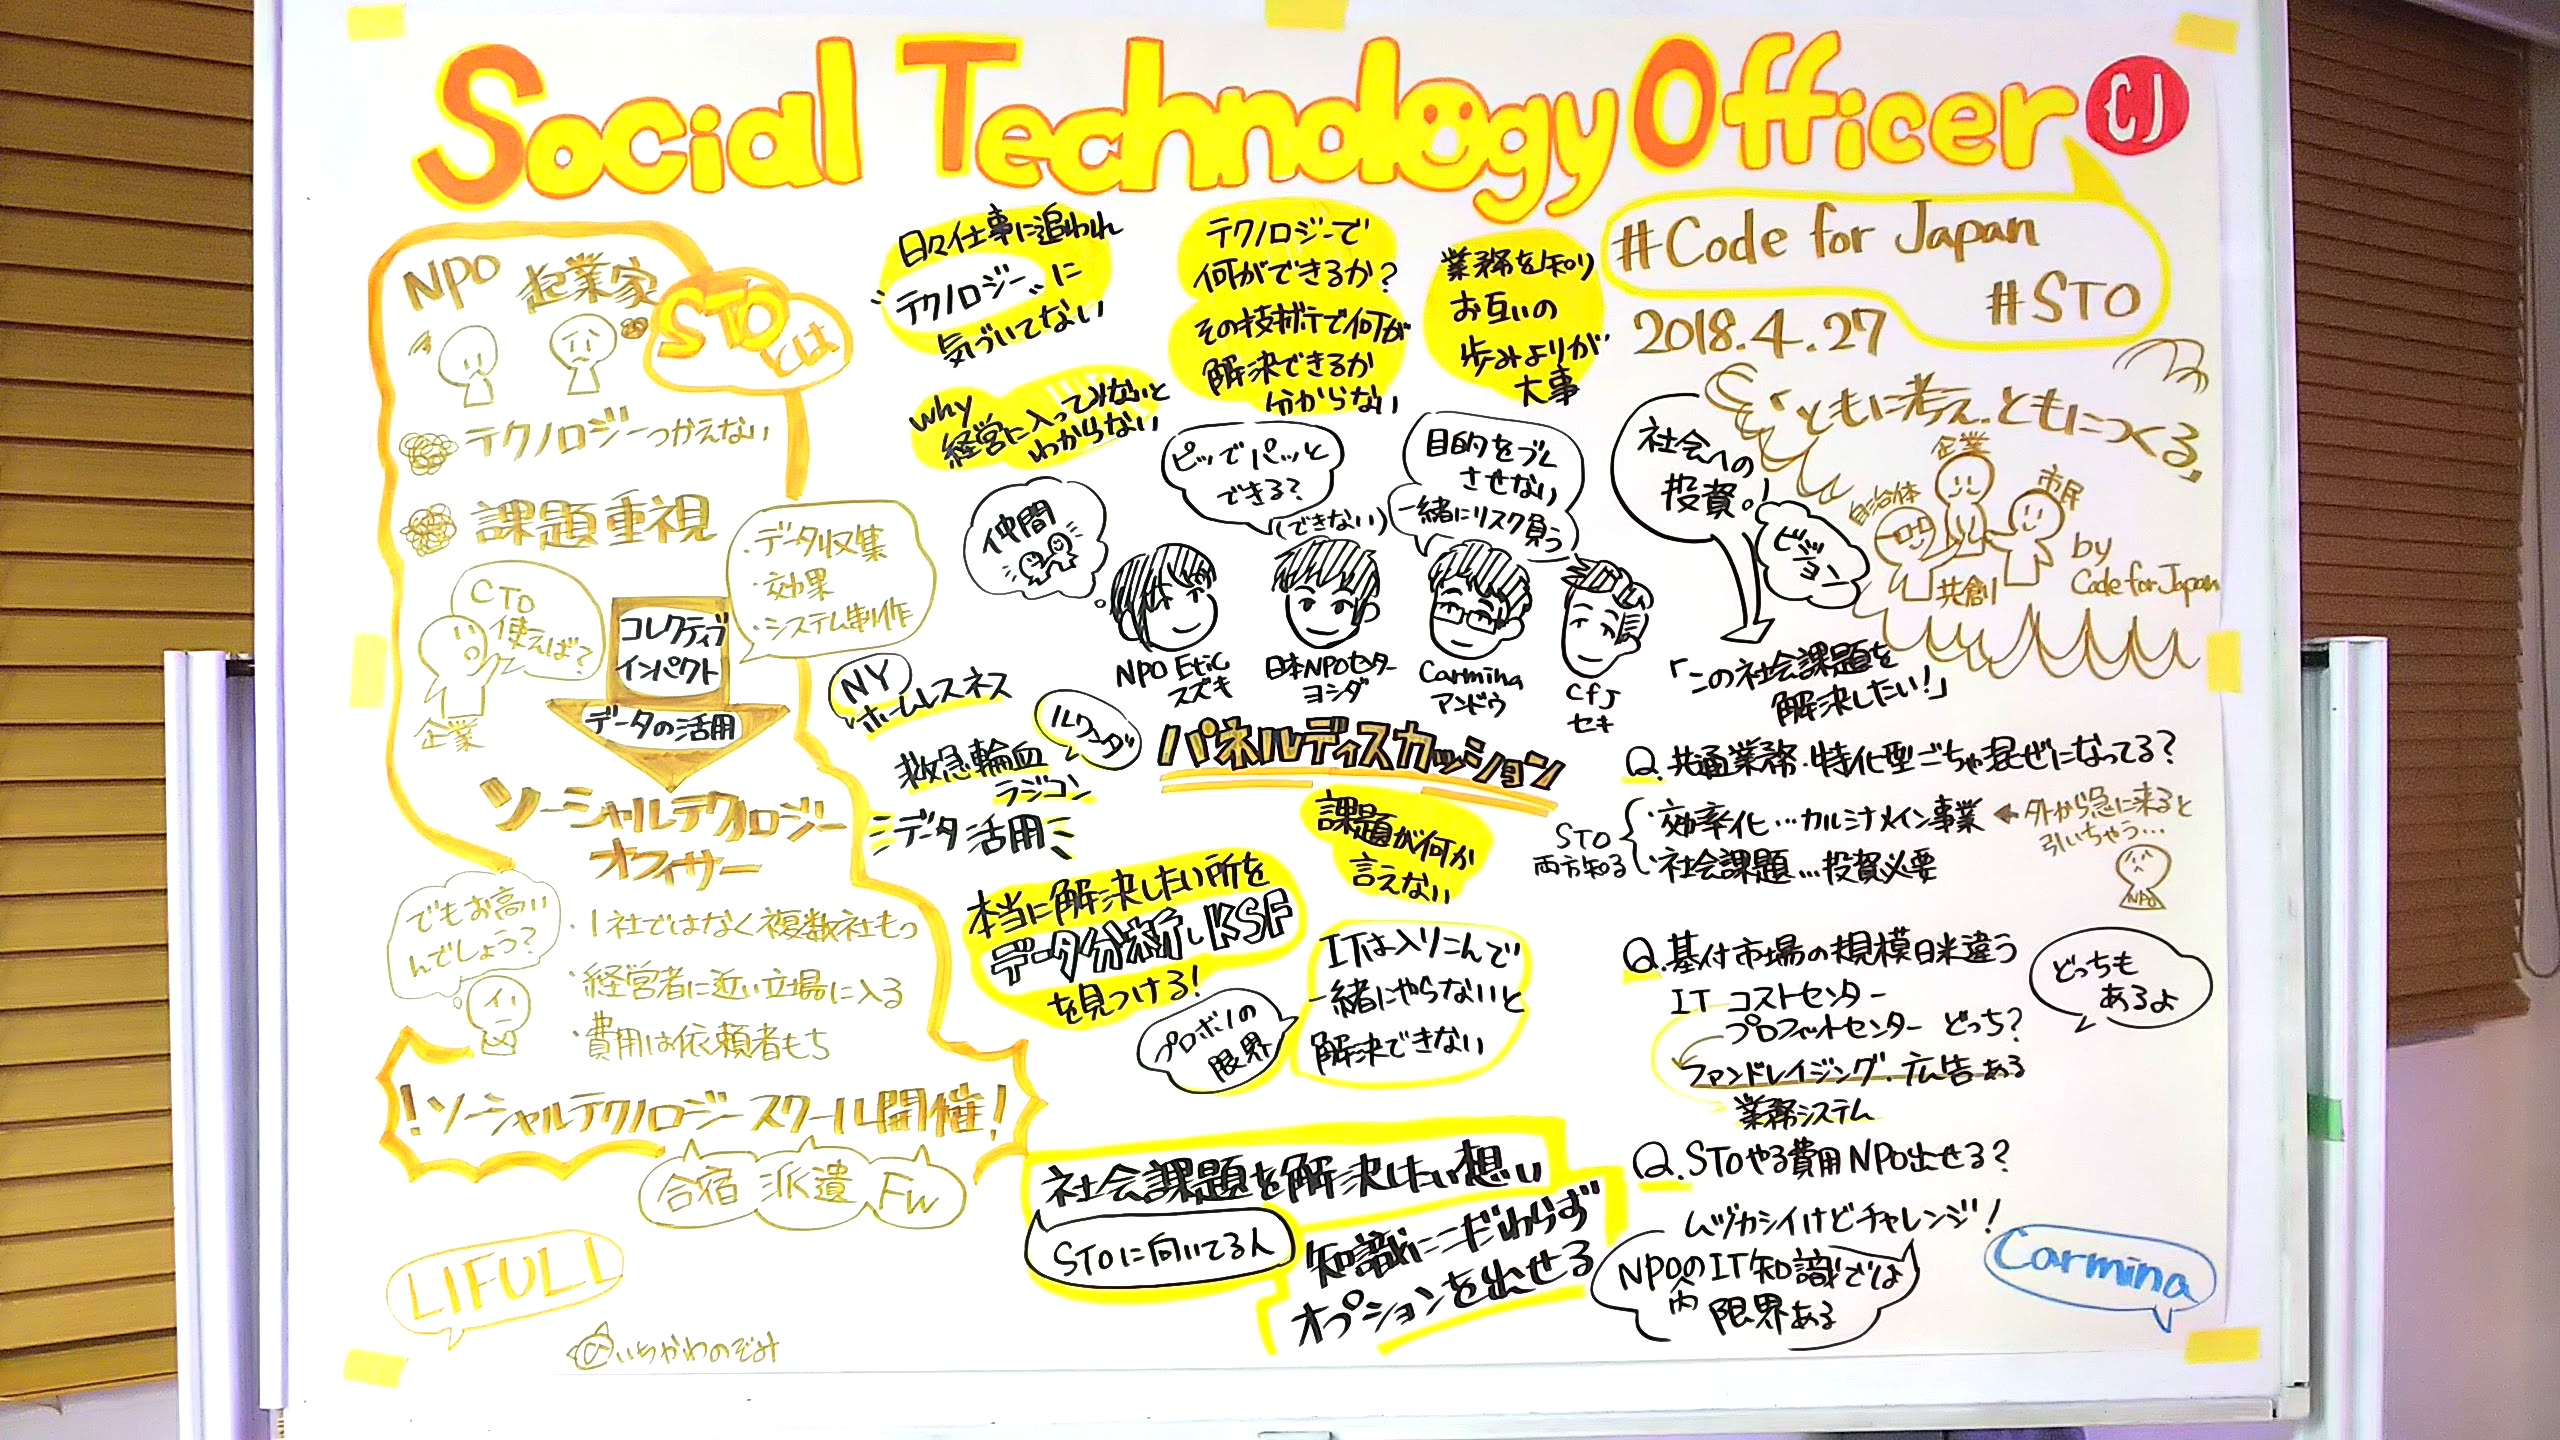 Social Technology Officer
{C J
#Code for Japan
#STO
2018.4.27
NPO 起業家
STOとは
テクノロジーつかえない
課題重視
CTO
使えば?
企業
コレクティブ
インパクト
データの活用
・データ収集
・効果
・システム制作
ソーシャルテクノロジー
オフィサー
でもお高い
んでしょう?
・1社ではなく複数社もつ
・経営者に近い立場に入る
・費用は依頼者もち
!ソーシャルテクノロジースクール開催!
合宿 派遣 FW
LIFULL
いちかわのぞみ
日々仕事に追われ
"テクノロジー"に
気づいてない
why
経営に入ってみないと
わからない
テクノロジーで
何ができるか?
その技術で何が
解決できるか
分からない
業務を知り
お互いの
歩みよりが
大事
仲間
ピッでパッと
できる?
(できない)
目的をブレ
させない
一緒にリスク負う
社会への
投資。
ビジョン
「この社会課題を
解決したい!」
NPO ETIC
スズキ
日本NPOセンター
ヨシダ
Carmina
アンドウ
CfJ
セキ
パネルディスカッション
NY
ホームレスネス
ルワンダ
救急輸血
ラジコン
データ活用
本当に解決したい所を
データ分析しKSF
を見つける!
課題が何か
言えない
ITは入りこんで
一緒にやらないと
解決できない
プロボノの
限界
社会課題を解決したい想い
STOに向いてる人
知識にこだわらず
オプションを出せる
「ともに考え、ともにつくる」
企業
自治体
市民
共創
by
Code for Japan
Q.共通業務・特化型ごちゃ混ぜになってる?
STO
両方知る
・効率化…カルミナメイン事業
・社会課題…投資必要
外から急に来ると
引いちゃう…
NPO
Q.基付市場の規模日米違う
IT コストセンター
プロフィットセンター どっち?
ファンドレイジング・広告ある
業務システム
どっちも
あるよ
Q.STOやる費用NPO出せる?
ムヅカシイけどチャレンジ!
NPO内のIT知識では
限界ある
Carmina